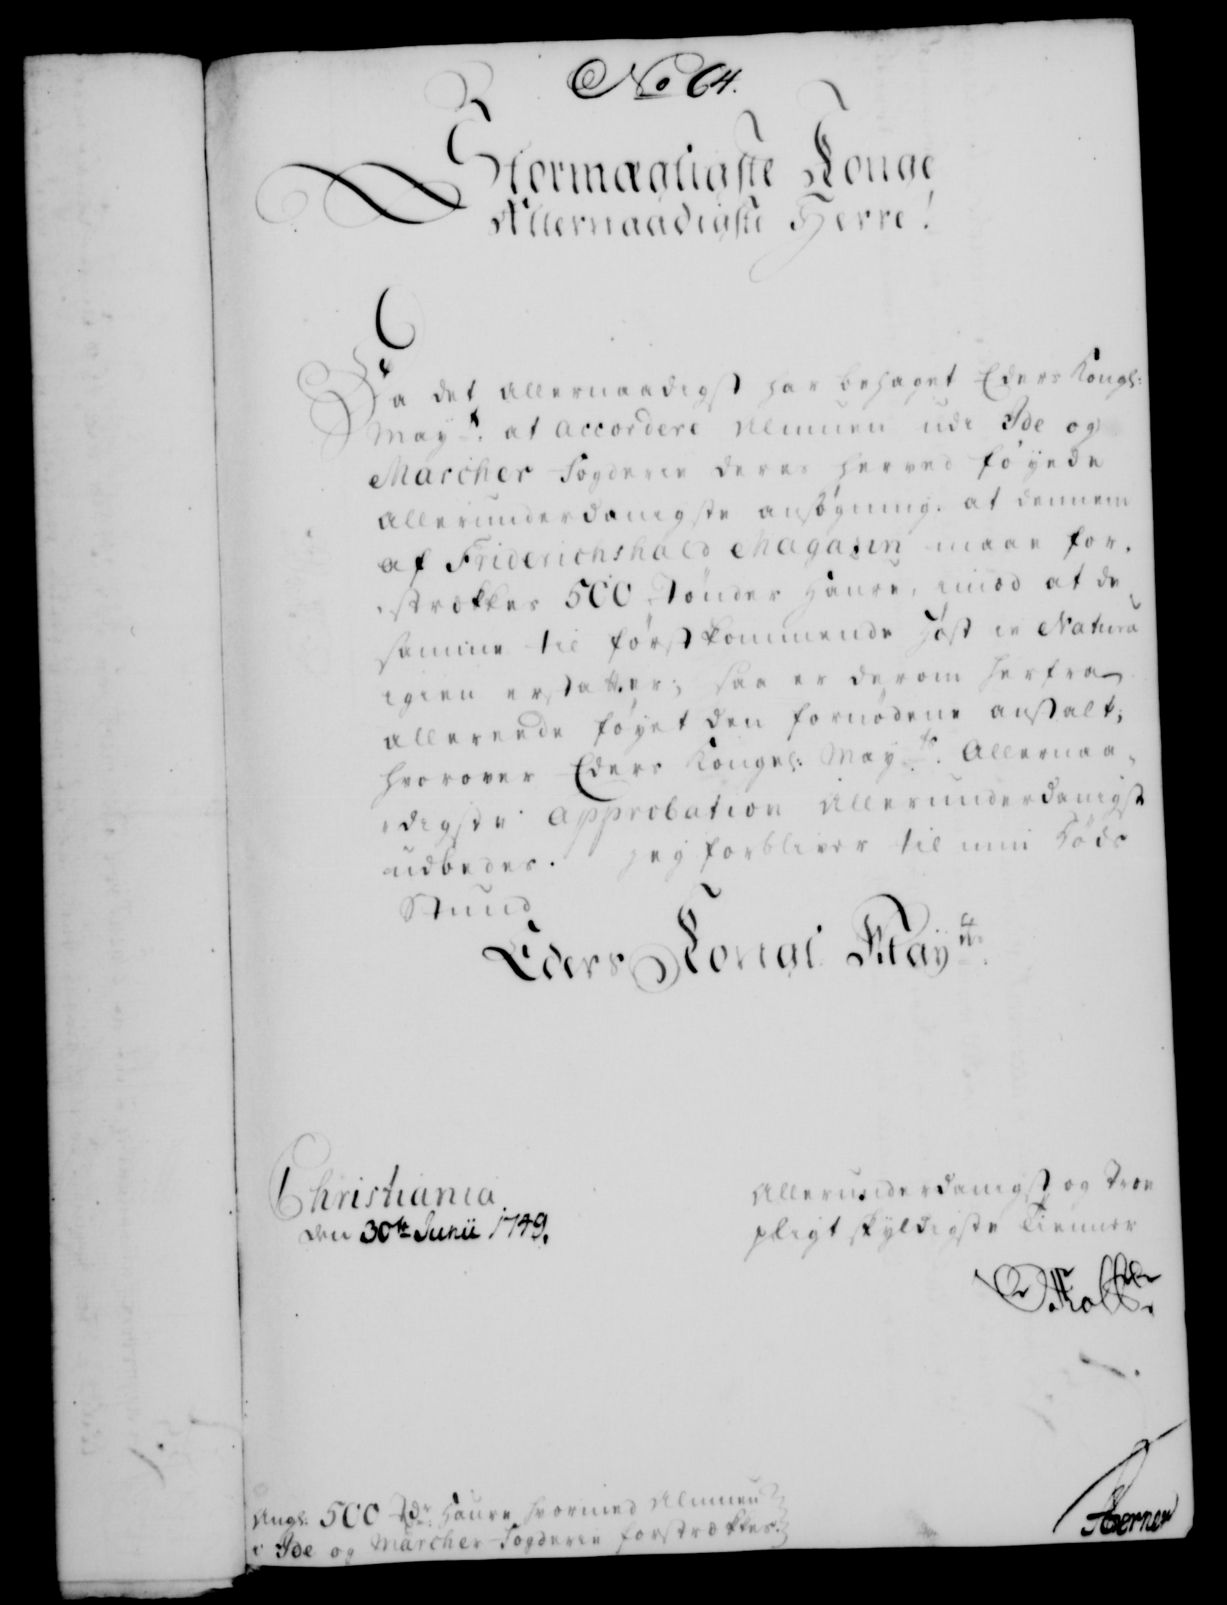 No 64.
Stormægtigste Konge
Allernaadigste Herre!
Saa det allernaadigst har behaget Eders Kongl:
Mayt: at accordere Almuen udi Ide og
Marcher Fogderie deres herved föyede
allerunderdanigste ansögning, at dennem
af Friderichshald Magazin maae for-
strækkes 500 Tönder Haure, imod at de
samme til förstkommende Höst in Natura
igien erstatter; saa er derom herfra
allereede föyet den fornödene anstalt,
hvorover Eders Kongel: Mayts: Allernaa-
digste Approbation Allerunderdanigst
udbedes. Jeg forbliver til min Döds
Stund
Eders Kongl Mayts
Christiania
den 30te Junii 1749.
Allerunderdanigst og Troe
pligt skyldigste Tienner
Ang: 500 Tdr: Haure hvormed Almuen
i Ide og Marcher Fogderie forstrækkes.